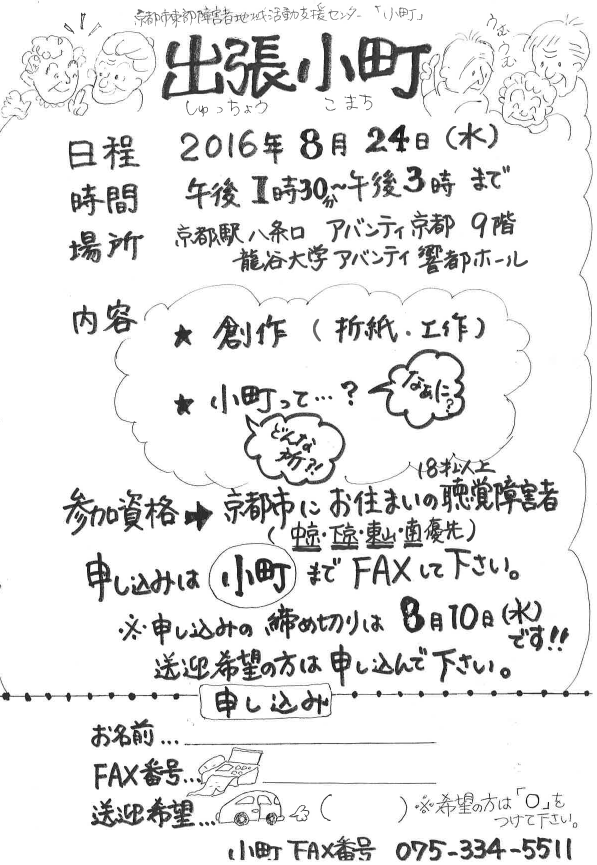 京都市東部障害者地域活動支援センター 「小町」
うむうむ
出張小町
しゅっちょう こまち
日程 2016年 8月 24日 (水)
時間 午後 1時30分~午後 3時 まで
場所 京都駅 八条口 アバンティ京都 9階
龍谷大学アバンティ 響都ホール
内容 ★ 創作 ( 折紙・工作 )
★ 小町って…? なぁに?
どんな所?!
18才以上
参加資格 ➡ 京都市に お住まいの 聴覚障害者
( 中京・下京・東山・南優先 )
申し込みは 小町 まで FAXして下さい。
※申し込みの 締め切りは 8月10日(水)です!!
送迎希望の方は 申し込んで 下さい。
申し込み
お名前…
FAX番号…
送迎希望… ( ) ※希望の方は「〇」をつけて下さい。
小町 FAX番号 075-334-5511